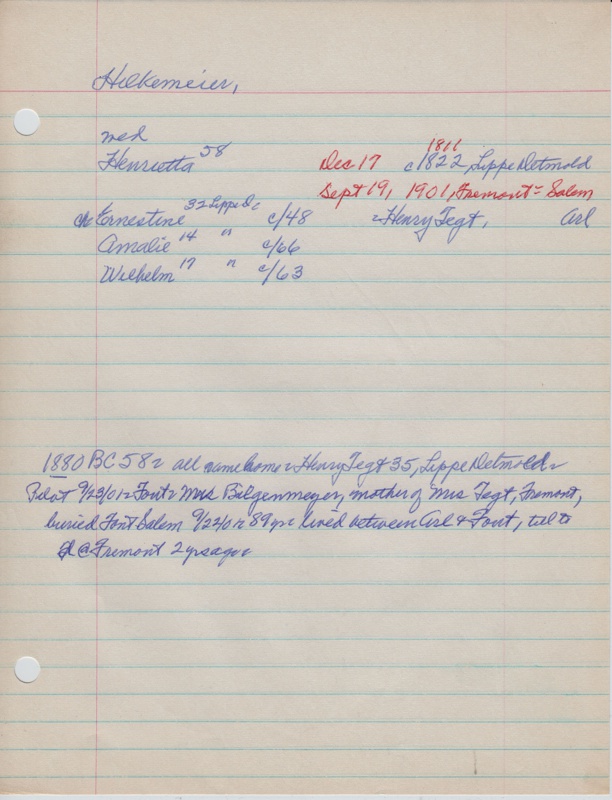 Hilkemeier,
wed
Henrietta 58 Dec 17 c 1822, Lippe Detmold
1811
Sept 19, 1901, Fremont = Salem
ch Ernestine 32 Lippe D. c/48 = Henry Tegt, Arl
Amalie 14 " c/66
Wilhelm 17 " c/63
1880 BC 58 = all same home = Henry Tegt 35, Lippe Detmold =
9/23/01 = Font = Mrs Bilgenmeyer, mother of Mrs Tegt, Fremont,
buried Font Salem 9/22/01 = 89 yrs lived between Arl & Font,
@ Fremont 2 yrs ago =